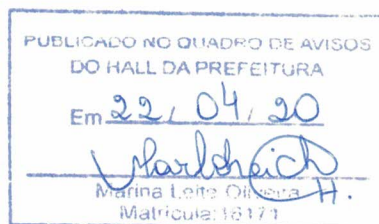 PUBLICADO NO QUADRO DE AVISOS
DO HALL DA PREFEITURA
Em 22/ 04/ 20
H.
Marina Leite Oliveira
Matrícula: 16171